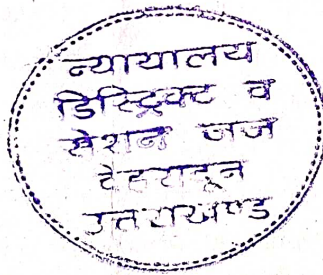 न्यायालय
डिस्ट्रिक्ट व
सेशन जज
देहरादून
उत्तराखण्ड